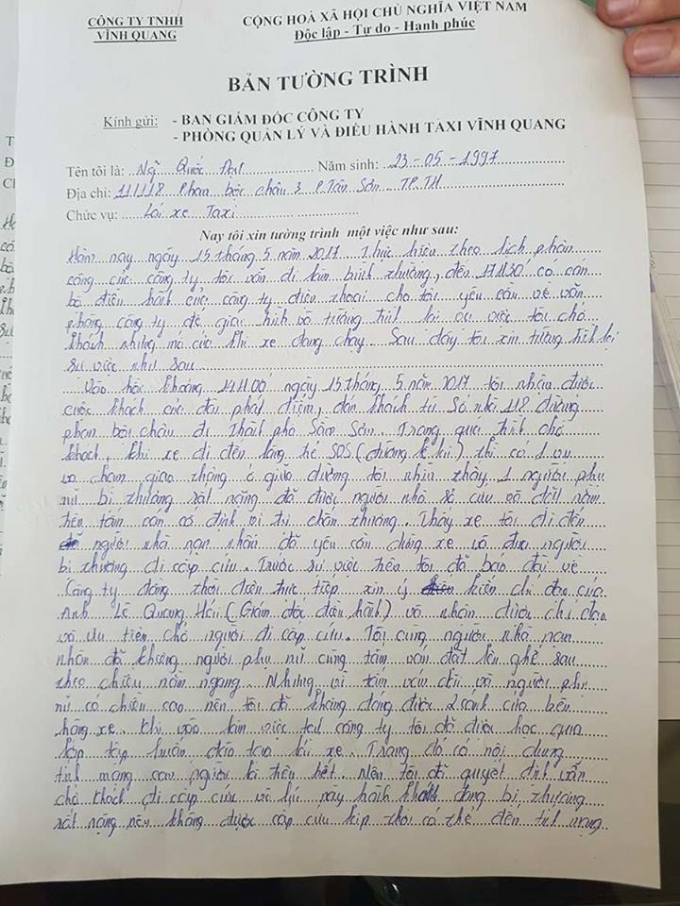 CÔNG TY TNHH
VĨNH QUANG
CỘNG HOÀ XÃ HỘI CHỦ NGHĨA VIỆT NAM
Độc lập - Tự do - Hạnh phúc
BẢN TƯỜNG TRÌNH
Kính gửi: - BAN GIÁM ĐỐC CÔNG TY
- PHÒNG QUẢN LÝ VÀ ĐIỀU HÀNH TAXI VĨNH QUANG
Tên tôi là: Ngô Quốc Đạt Năm sinh: 23-05-1997
Địa chỉ: 111118 Phan bội châu 3 P Tân Sơn TP.TH
Chức vụ: Lái xe Taxi
Nay tôi xin tường trình một việc như sau:
Hôm nay ngày 15 tháng 5 năm 2017. Thực hiện theo lịch phân
công của công ty tôi vẫn đi làm bình thường, đến 17H30' có cán
bộ điều hành của công ty điện thoại cho tôi yêu cầu về văn
phòng công ty để giải trình và tường trình lại sự việc tôi chở
khách nhưng mở cửa khi xe đang chạy. Sau đây tôi xin tường trình lại
sự việc như sau
Vào hồi khoảng 14H00' ngày 15 tháng 5 năm 2017 tôi nhận được
cuốc khách của đài phát điểm, đón khách từ Số nhà 118 đường
phan bội châu đi Thành phố Sầm Sơn. Trong quá trình chở
khách, khi xe đi đến làng trẻ SOS (đường lê lai) thì có 1 vụ
va chạm giao thông ở giữa đường tôi nhìn thấy 1 người phụ
nữ bị thương rất nặng đã được người nhà sơ cứu và đặt nằm
trên tấm ván cố định vị trí chấn thương. Thấy xe tôi đi đến
người nhà nạn nhân đã yêu cầu dừng xe và đưa người
bị thương đi cấp cứu. Trước sự việc trên tôi đã báo đài về
Công ty đồng thời điện trực tiếp xin ý kiến chỉ đạo của
Anh Lê Quang Hải (Giám đốc điều hành) và nhận được chỉ đạo
và ưu tiên chở người đi cấp cứu. Tôi cùng người nhà nạn
nhân đã khiêng người phụ nữ cùng tấm ván đặt lên ghế sau
theo chiều nằm ngang. Nhưng vì tấm ván dài và người phụ
nữ có chiều cao nên tôi đã không đóng được 2 cánh cửa bên
hông xe. Khi vào làm việc tại công ty tôi đã được học qua
lớp tập huấn đào tạo lái xe. Trong đó có nội dung
tính mạng con người là trên hết. Nên tôi đã quyết định vẫn
chở khách đi cấp cứu vì lúc này hành khách đang bị thương
rất nặng nếu không được cấp cứu kịp thời có thể đến tính mạng